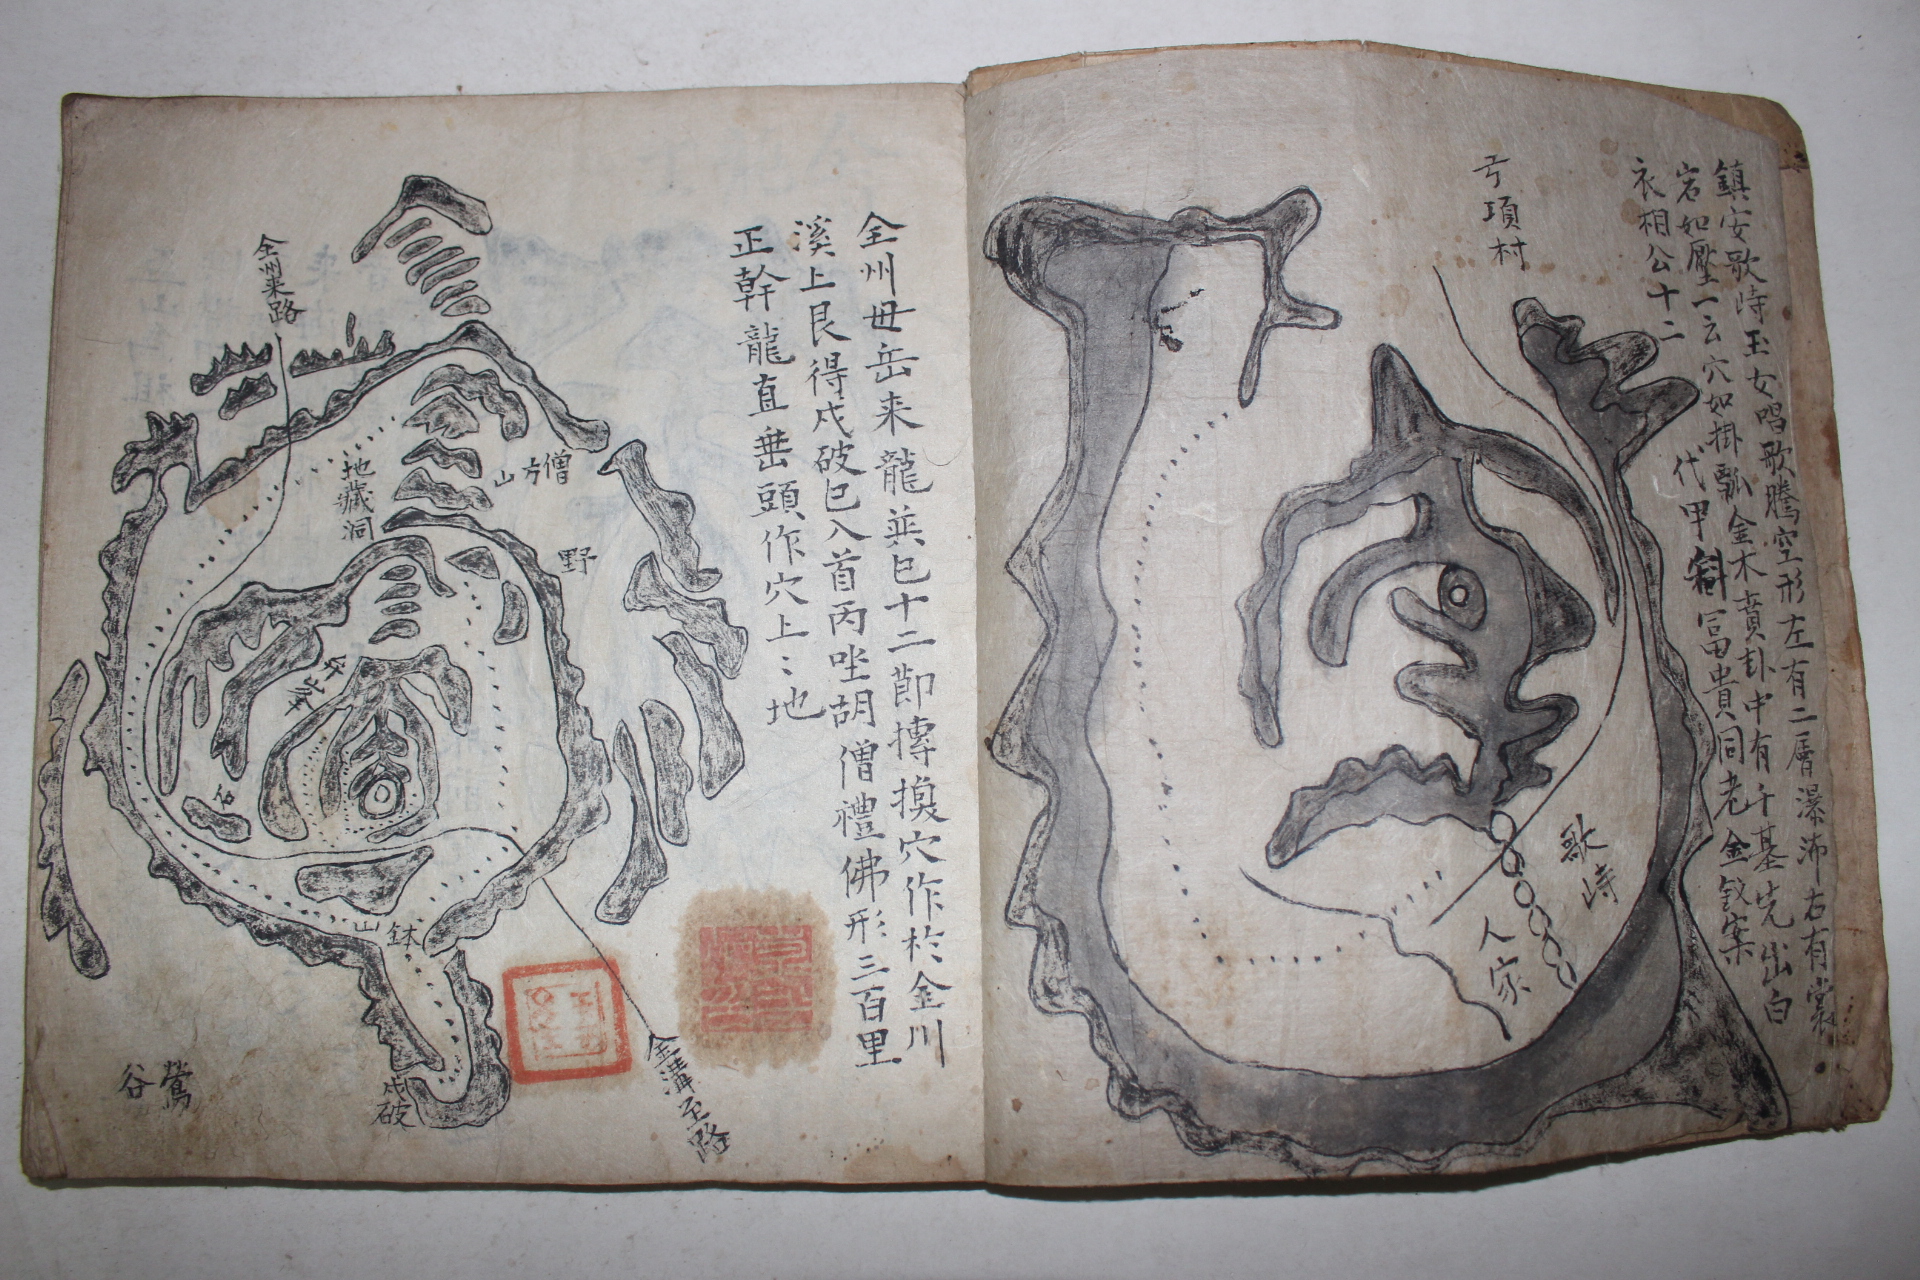 鎮安歌峙玉女唱歌騰空形左有二層瀑沛右有裳
岩如壓一云穴如掛瓢金木賁卦中有千基先出白
衣相公十二
代甲富貴同老金釵案
亏項村
歌峙
人家
全州母岳来龍巽巳十二節摶換穴作於金川
溪上艮得戌破巳入首丙坐胡僧禮佛形三百里
正幹龍直垂頭作穴上〻地
全州来路
地藏洞
僧方山
野
鉢山
戌破
金溝至路
鶯谷